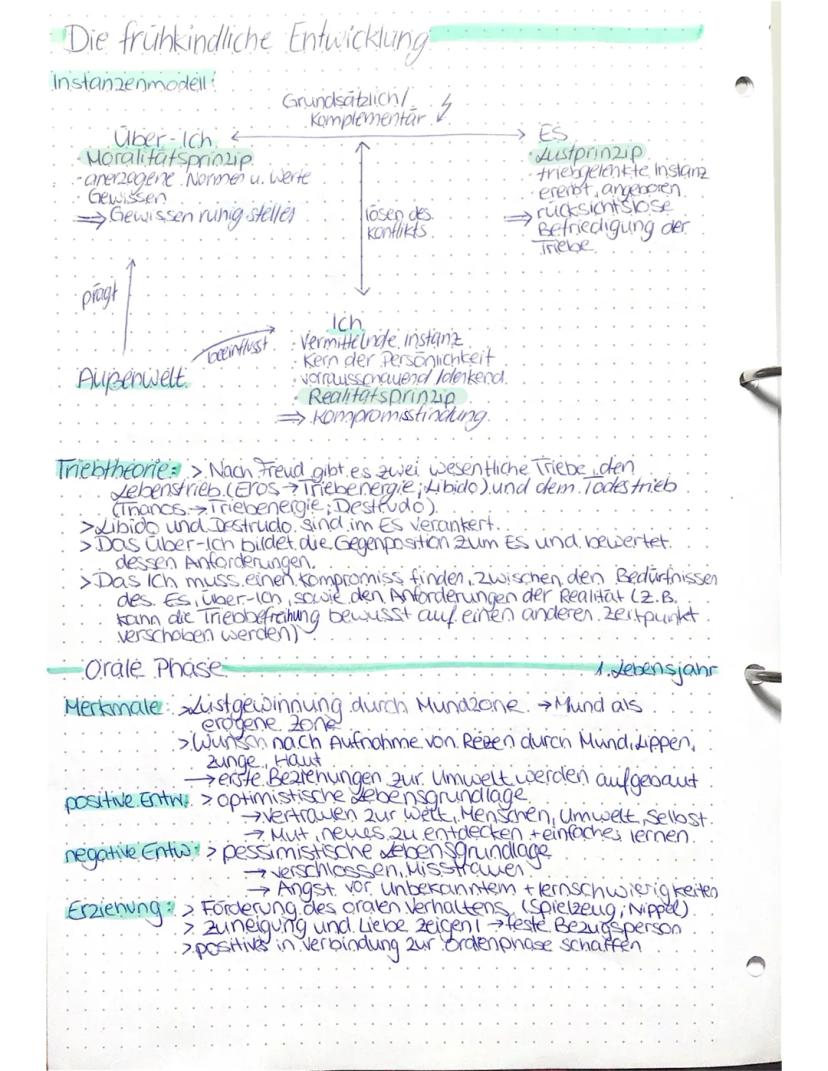 Die frühkindliche Entwicklung
Instanzenmodell:
Grundsätzlich/
Komplementär
Über-Ich
Moralitätsprinzip
- anerzogene Normen u. Werte
- Gewissen
⇒ Gewissen ruhig stellen
ES
- Lustprinzip
- triebgelenkte Instanz
- ererbt, angeboren
⇒ rücksichtslose
Befriedigung der
Triebe
lösen des
Konflikts
prägt
Außenwelt
beeinflusst
Ich
- Vermittelnde Instanz
- Kern der Persönlichkeit
- vorrausschauend/denkend
- Realitätsprinzip
⇒ Kompromissfindung
Triebtheorie: > Nach Freud gibt es zwei wesentliche Triebe, den
Lebenstrieb (Eros → Triebenergie; Libido) und dem Todestrieb
(Thanos → Triebenergie; Destrudo)
> Libido und Destrudo sind im ES verankert.
> Das Über-Ich bildet die Gegenposition zum ES und bewertet
dessen Anforderungen.
> Das Ich muss einen Kompromiss finden, zwischen den Bedürfnissen
des Es, Über-Ich, sowie den Anforderungen der Realität (z.B.
kann die Triebbefreihung bewusst auf einen anderen Zeitpunkt
verschoben werden)
Orale Phase 1. Lebensjahr
Merkmale: > Lustgewinnung durch Mundzone → Mund als
erogene Zone
> Wunsch nach Aufnahme von Reizen durch Mund, Lippen,
Zunge, Haut
→ erste Beziehungen zur Umwelt werden aufgebaut
positive Entw.: > optimistische Lebensgrundlage
→ Vertrauen zur Welt, Menschen, Umwelt, Selbst
→ Mut, neues zu entdecken + einfaches lernen
negative Entw: > pessimistische Lebensgrundlage
→ verschlossen, Misstrauen
→ Angst vor Unbekanntem + lernschwierigkeiten
Erziehung: > Förderung des oralen Verhaltens (Spielzeug; Nippel)
> Zuneigung und Liebe zeigen! → feste Bezugsperson
> positives in Verbindung zur Ordenphase schaffen